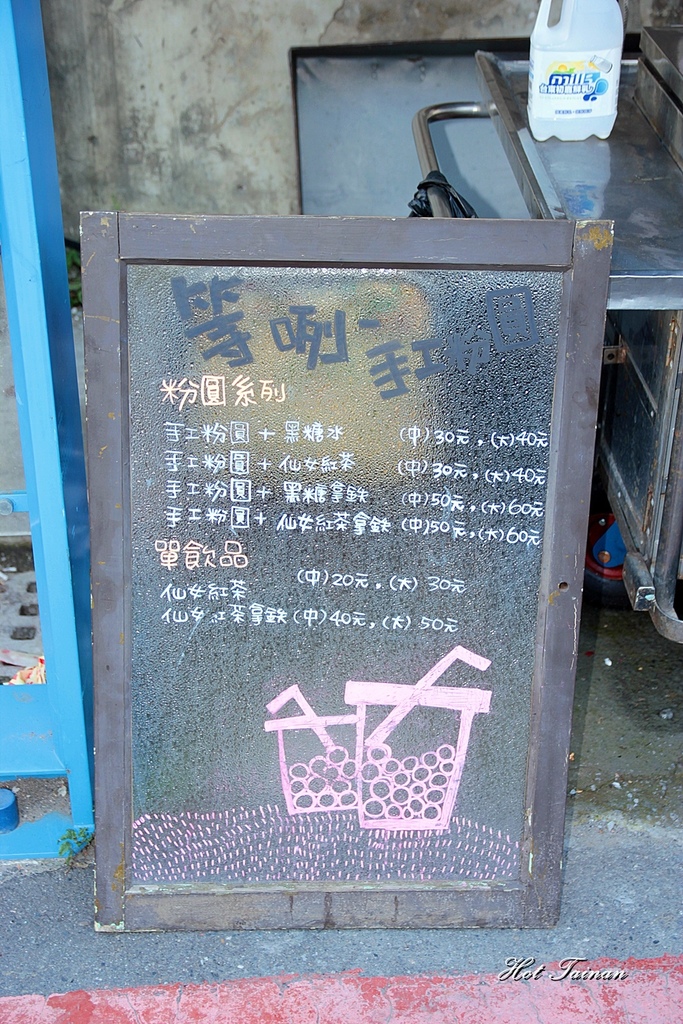 台灣初鹿鮮乳
等咧-手工粉圓
粉圓系列
手工粉圓+黑糖水 (中)30元,(大)40元
手工粉圓+仙女紅茶 (中)30元,(大)40元
手工粉圓+黑糖拿鉄 (中)50元,(大)60元
手工粉圓+仙女紅茶拿鉄 (中)50元,(大)60元
單飲品
仙女紅茶 (中)20元,(大)30元
仙女紅茶拿鉄(中)40元,(大)50元
Hot Tainan